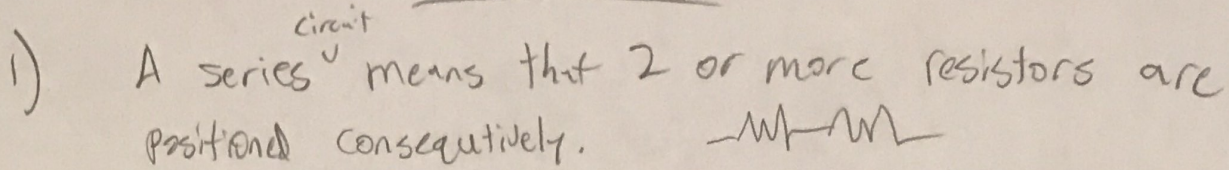 1) A series circuit means that 2 or more resistors are
positioned consequtively.